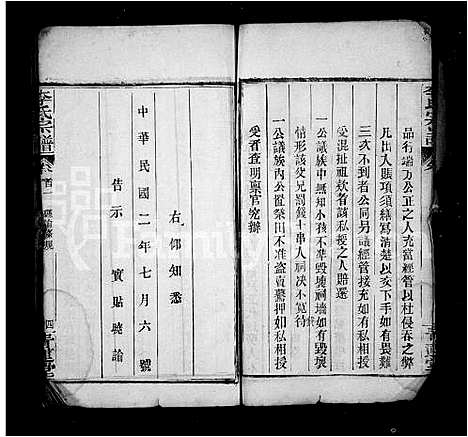 品行端方公正之人充當經管以杜侵吞之弊
凡出入賬項須繕寫清楚以次下手如有異
三次不到者公同另議經管接充如有私相授
受混扯祖欵者該私授之人賠還
一公議族中無知小孩不準毀壞祠墻如有毀壞
情形該父兄罰錢十串人祠決不寬待
一公議族內公置祭田不准盜賣驚押如私相授
受者查明稟官究辦
右仰知悉
中華民國二年七月六號
告示 實貼曉諭
李氏宗譜
卷首一
四